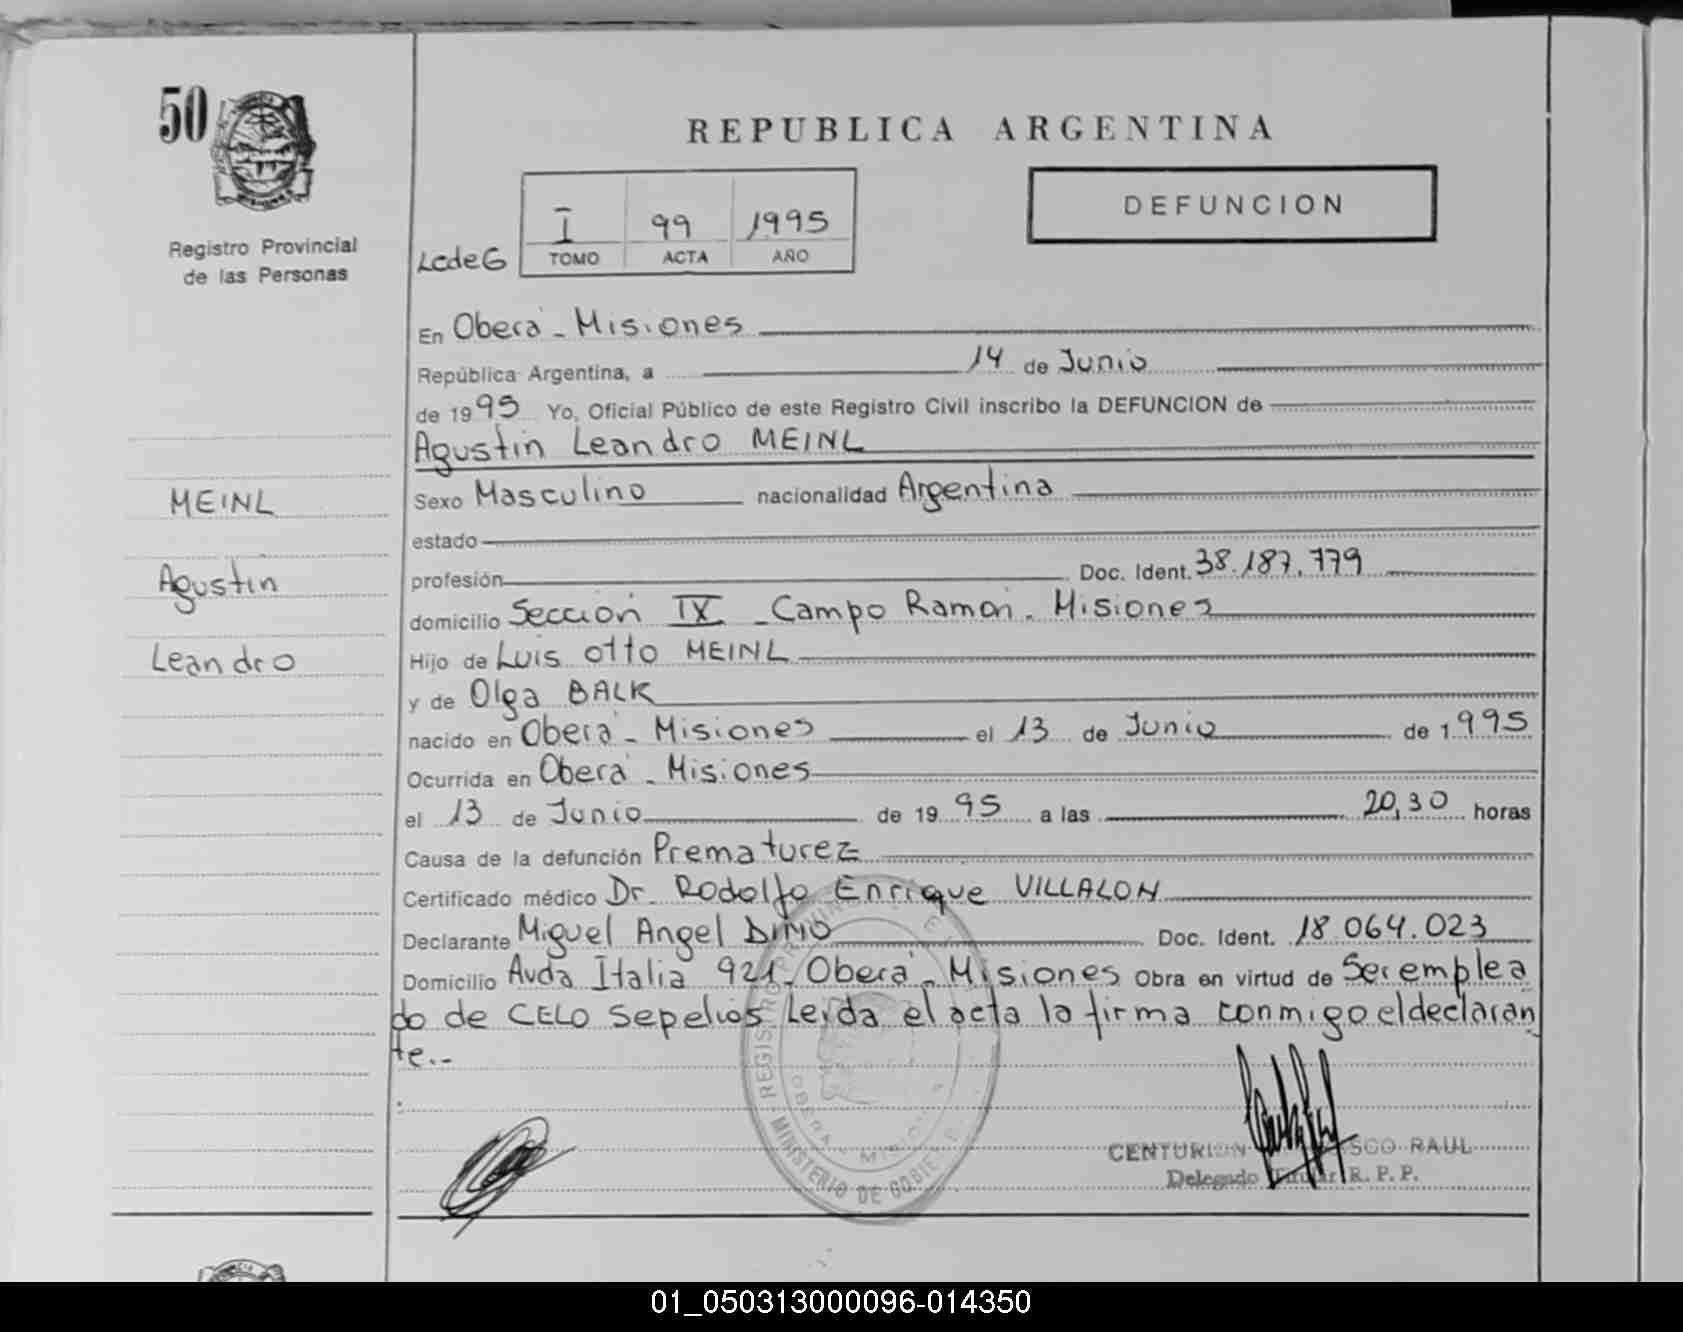 50
Registro Provincial
de las Personas
REPUBLICA ARGENTINA
DEFUNCION
I 99 1995
LcdeG TOMO ACTA AÑO
En Oberá - Misiones
República Argentina, a 14 de Junio
de 1995 Yo, Oficial Público de este Registro Civil inscribo la DEFUNCION de
Agustin Leandro MEINL
MEINL
Agustin
Leandro
Sexo Masculino nacionalidad Argentina
estado
profesión Doc. Ident. 38.187.779
domicilio Sección IX - Campo Ramón. Misiones
Hijo de Luis Otto MEINL
y de Olga BALK
nacido en Oberá - Misiones el 13 de Junio de 1.995
Ocurrida en Oberá - Misiones
el 13 de Junio de 1995 a las 20,30 horas
Causa de la defunción Prematurez
Certificado médico Dr. Rodolfo Enrique VILLALON
Declarante Miguel Angel Doc. Ident. 18.064.023
Domicilio Avda Italia 921 - Oberá - Misiones Obra en virtud de Ser emplea
do de CELO Sepelios Leida el acta la firma conmigo el declaran
te.--
REGISTRO PROVINCIAL DE
OBERA MISIONES
MINISTERIO DE GOBIE
CENTURION SCO RAUL
Delegado Titular R. P. P.
01_050313000096-014350